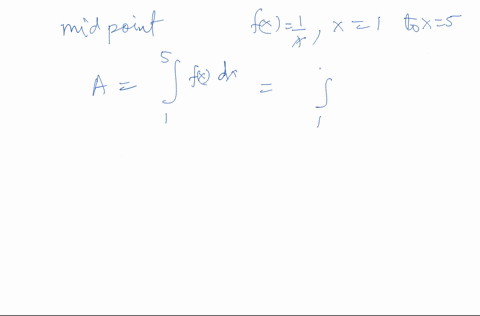 midpoint f(x)=1/x, x=1 to x=5
A = ∫₁⁵ f(x) dx = ∫₁